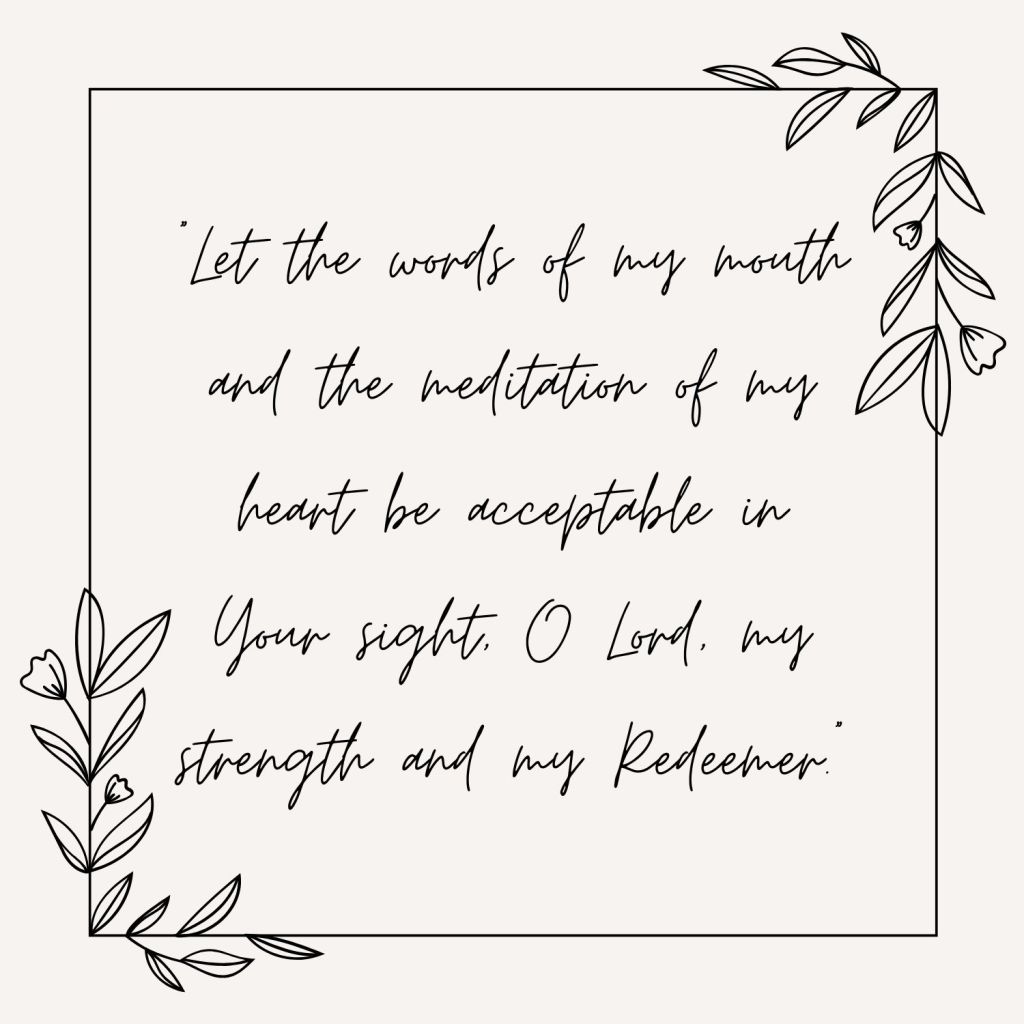 "Let the words of my mouth
and the meditation of my
heart be acceptable in
Your sight, O Lord, my
strength and my Redeemer."